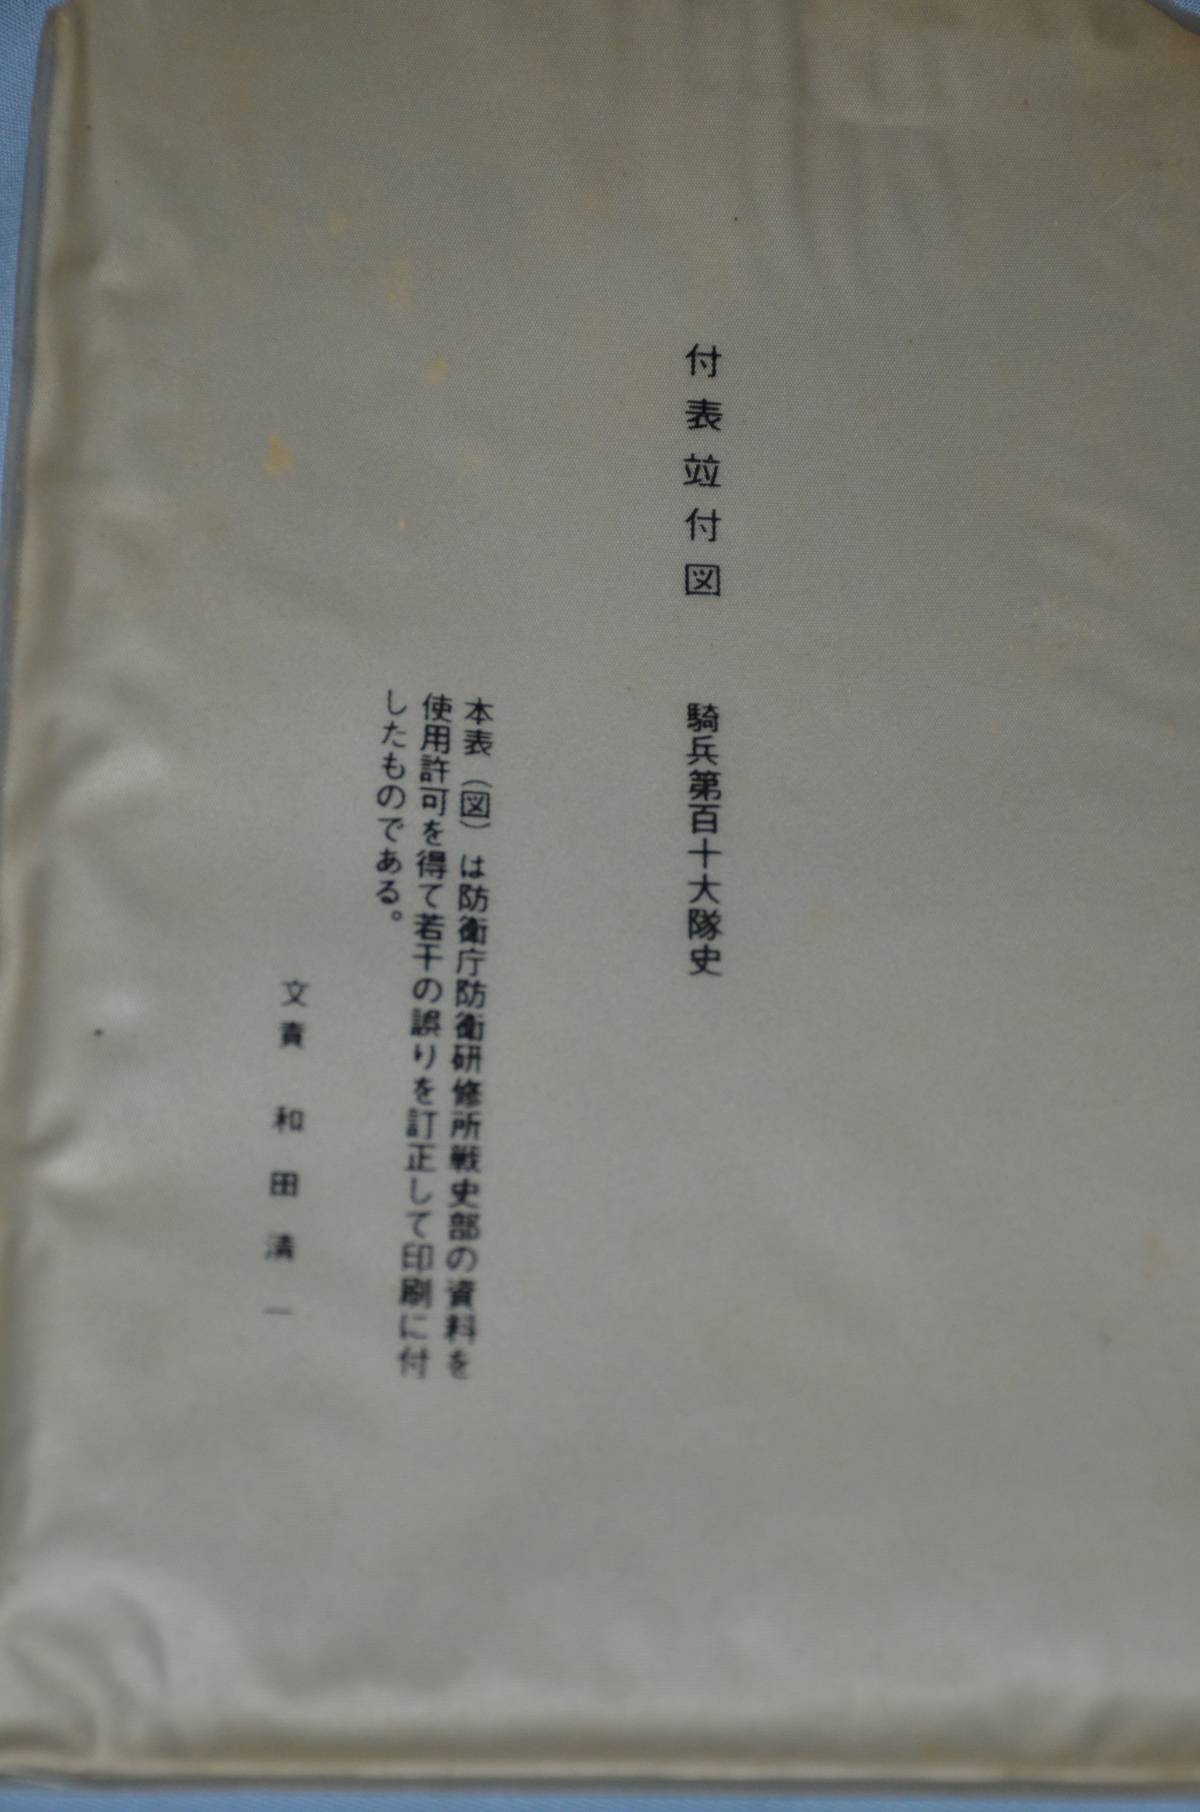 付表竝付図　騎兵第百十大隊史
本表（図）は防衛庁防衛研修所戦史部の資料を
使用許可を得て若干の誤りを訂正して印刷に付
したものである。
文責　和田清一